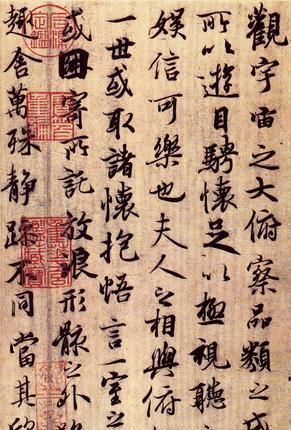 觀宇宙之大俯察品類之盛
所以遊目騁懷足以極視聽之
娛信可樂也夫人之相與俯
一世或取諸懷抱悟言一室之
或因寄所託放浪形骸之外
趣舍萬殊静躁不同當其欣